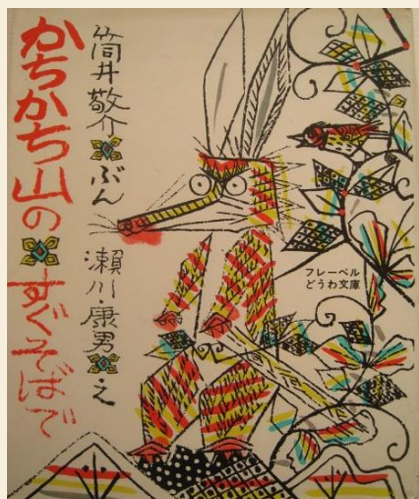 かちかち山の
すぐそばで
筒井敬介
ぶん
瀬川・康男
え
フレーベル
どうわ文庫